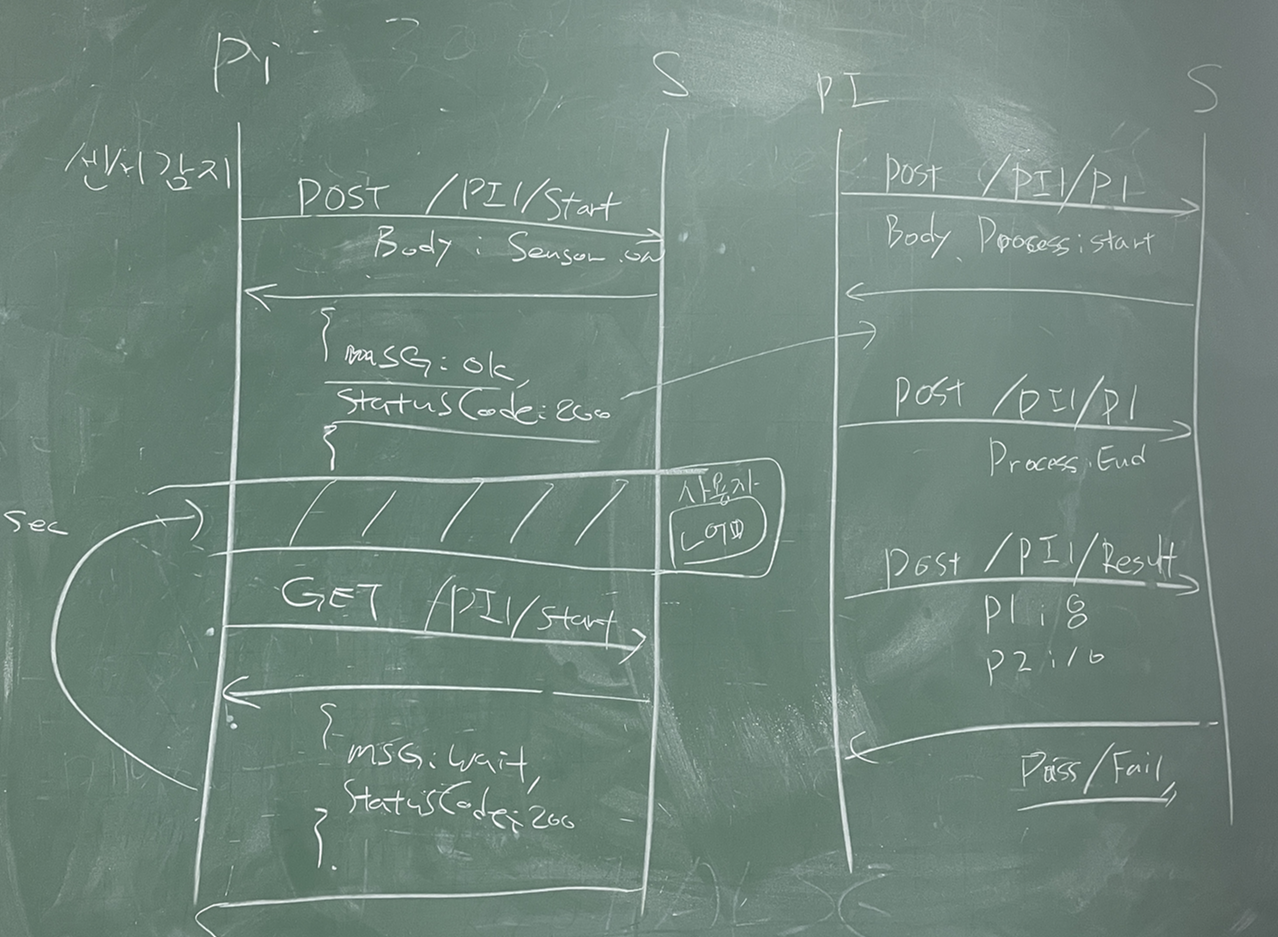 Pi
S
센서감지
POST /PI1/Start
Body : Sensor : on
{
msG : ok,
StatusCode : 200
}
사용자
Sec
GET /PI1/start
{
msG : wait,
StatusCode : 200
}
PI
S
Post /PI1/P1
Body. Process : start
Post /PI1/P1
Process : End
Post /PI1/Result
P1 : 8
P2 : 10
Pass/Fail